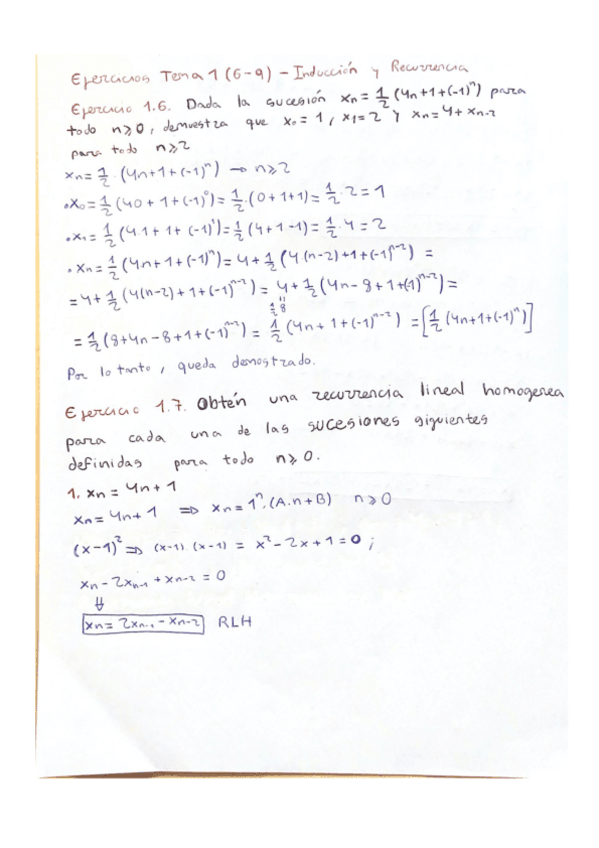 Ejercicios Tema 1 (6-9) - Inducción y Recurrencia
Ejercicio 1.6. Dada la sucesión xn = 1/2 (4n+1+(-1)^n) para
todo n≥0, demuestra que x0 = 1, x1 = 2 y xn = 4 + xn-2
para todo n≥2
xn = 1/2 · (4n+1+(-1)^n) → n≥2
• x0 = 1/2 (4·0 + 1 + (-1)^0) = 1/2 · (0+1+1) = 1/2 · 2 = 1
• x1 = 1/2 (4·1 + 1 + (-1)^1) = 1/2 (4+1-1) = 1/2 · 4 = 2
• xn = 1/2 (4n+1+(-1)^n) = 4 + 1/2 (4(n-2)+1+(-1)^n-2) =
= 4 + 1/2 (4(n-2)+1+(-1)^n-2) = 4 + 1/2 (4n-8+1+(-1)^n-2) =
"
1/2 8
= 1/2 (8+4n-8+1+(-1)^n-2) = 1/2 (4n+1+(-1)^n-2) = [1/2 (4n+1+(-1)^n)]
Por lo tanto, queda demostrado.
Ejercicio 1.7. Obtén una recurrencia lineal homogenea
para cada una de las sucesiones siguientes
definidas para todo n≥0.
1. xn = 4n+1
xn = 4n+1 ⇒ xn = 1^n · (A·n+B) n≥0
(x-1)^2 ⇒ (x-1) (x-1) = x^2 - 2x + 1 = 0 ;
xn - 2xn-1 + xn-2 = 0
⇓
xn = 2xn-1 - xn-2 RLH